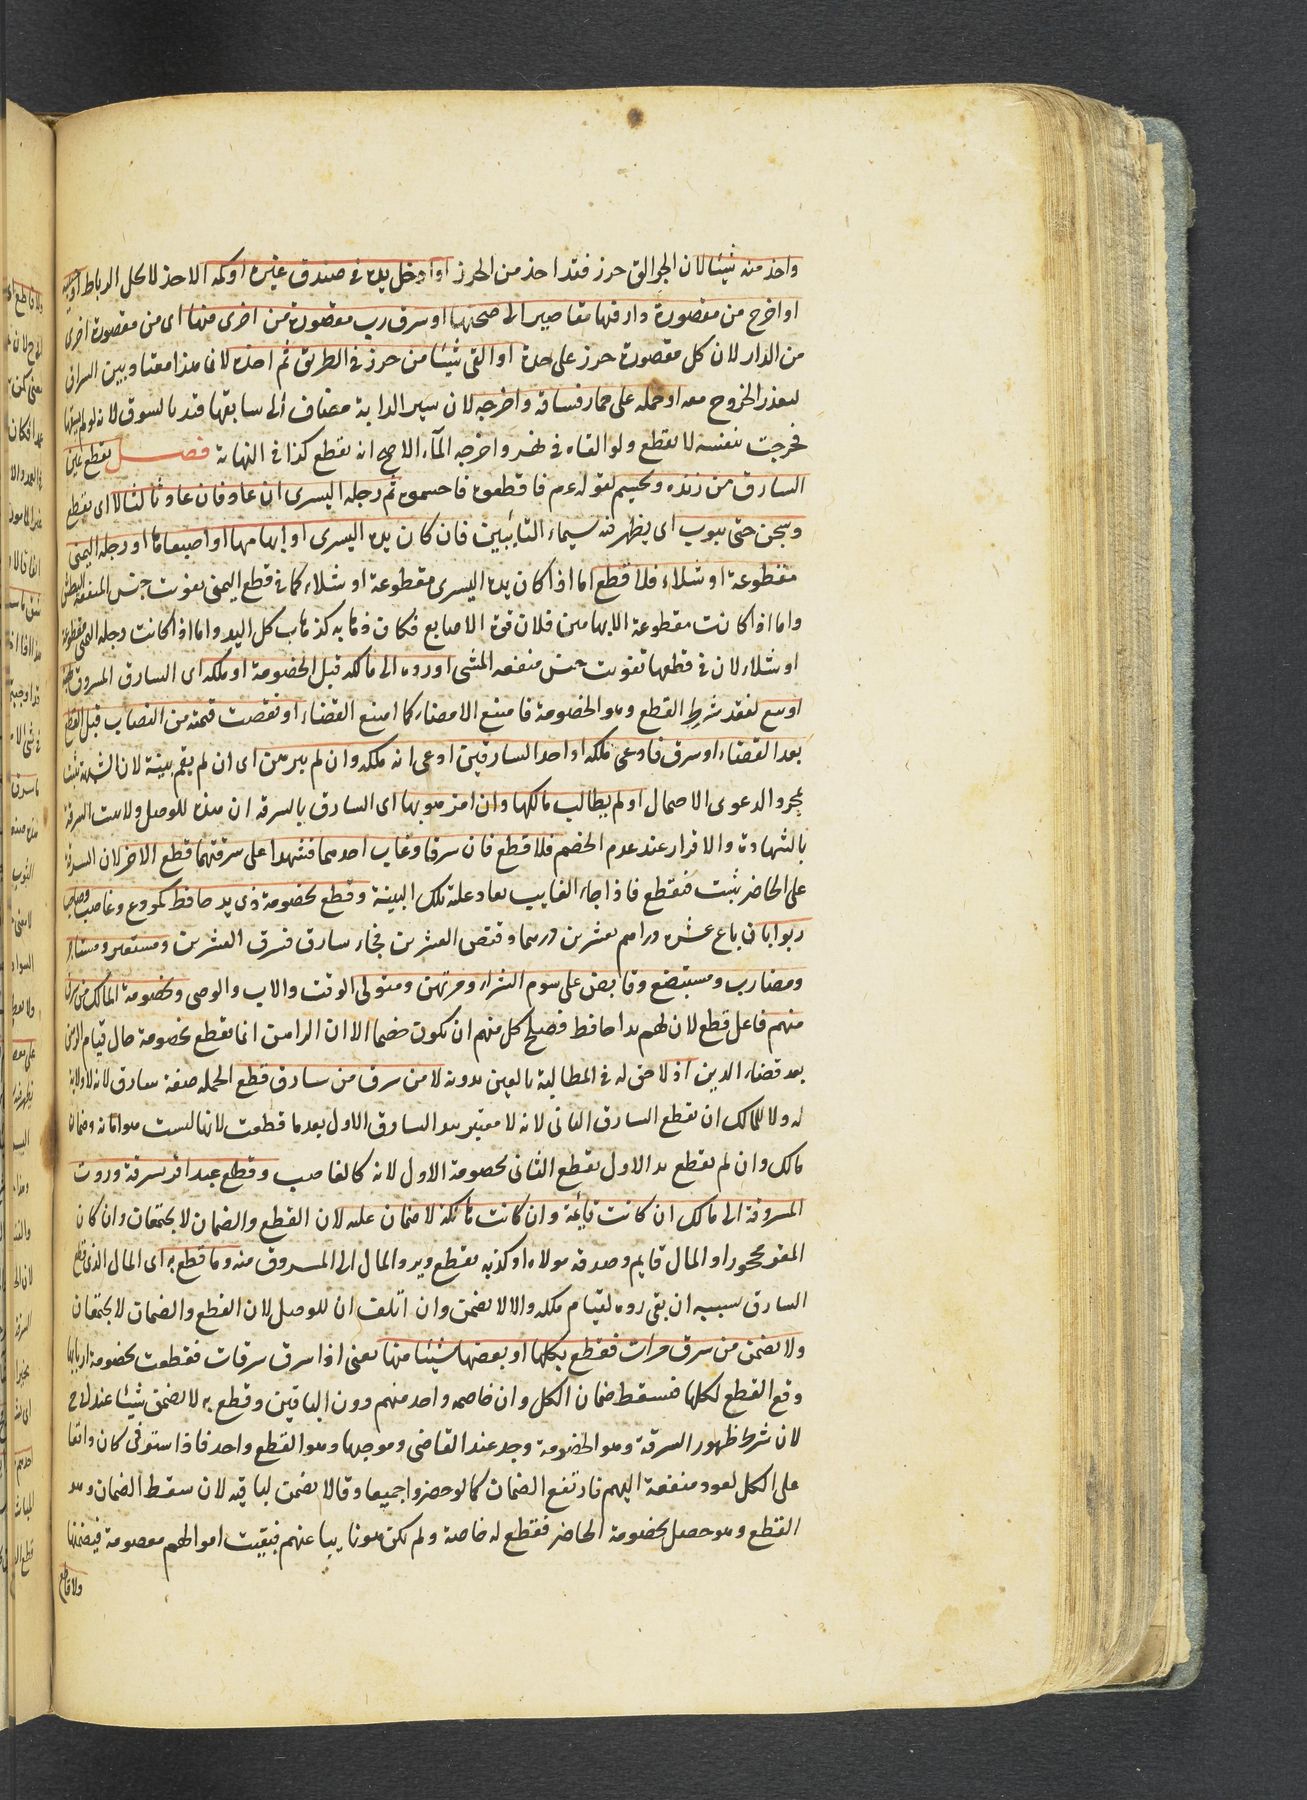 واخذ منه شيئا لان الجوالق حرز فقد اخذ من الحرز او ادخل يده في صندوق غيره او كمه الاخذ لا كل الرباط
او اخرج من مقصورة دار فيها مقاصير الى صحنها او سرق رب مقصورة من اخرى منها اى من مقصورة اخرى
من الدار لان كل مقصورة حرز على حدة او القى شيئا من حرز في الطريق ثم اخذه لان هذا معتاد بين السراق
لتعذر الخروج معه او حمله على حمار فساقه واخرجه لان سير الدابة مضاف الى سائقها قيد بالسوق لانه لو لم يسقها
فخرجت بنفسه لا يقطع ولو القاه في نهر واخرجه الماء الاصح انه يقطع كذا في النهاية فصل يقطع يمين
السارق من زنده وتحسم لقوله عم فاقطعوه فاحسموه ثم رجله اليسرى ان عاد فان عاد ثالثا لا اى يقطع
وسجن حتى يتوب اى يظهر فيه سيماء التائبين فان كان يده اليسرى او ابهامها او اصبعاها او رجله اليمنى
مقطوعة او شلاء فلا قطع اما اذا كان يده اليسرى مقطوعة او شلاء كما في قطع اليمنى تفويت جنس المنفعة البطش
واما اذا كانت مقطوعة الابهامين فلان قوة الاصابع فكان ذهابه كذهاب كل اليد واما اذا كانت رجله اليمنى مقطوعة
او شلاء لان في قطعها تفويت جنس منفعة المشى او رده الى مالكه قبل الخصومة او ملكه اى السارق المسروق
او بيع لفقد شرط القطع وهو الخصومة فامتنع الامضاء كما امتنع القضاء او نقصت قيمته من النصاب قبل القطع
بعد القضاء او سرق فادعى ملكه او احد السارقين ادعى انه ملكه وان لم يبرهن اى ان لم يقم بينة لان الشبهة تثبت
بمجرد الدعوى الاحتمال او لم يطالب مالكها وان اقر هو بها اى السارق بالسرقة ان هذه للوصل ولا يثبت السرقة
بالشهادة والاقرار عند عدم الخصم فلا قطع فان سرقا وغاب احدهما فشهدا على سرقتهما قطع الاخر لان السرقة
على الحاضر تثبت فيقطع فاذا جاء الغايب يعاد عليه تلك البينة وقطع بخصومة ذى يد حافظ كمودع وغاصب وصاحب
ربوا بان باع عشرة دراهم بعشرين درهما وقبض العشرين فجاء سارق فسرق العشرين ومستعير ومستأجر
ومضارب ومستبضع وقابض على سوم الشراء ومرتهن ومتولى الوقف والاب والوصى وبخصومة المالك من سرق
منهم فاعل قطع لان لهم يدا حافظ فصلح كل منهم ان يكون خصما الا ان الراهن انما يقطع بخصومة حال قيام الرهن
بعد قضاء الدين اذ لا حق له في المطالبة بالعين بدونه لا من سرق من سارق قطع الجملة صفة سارق لانه لا ولاية
له ولا للمالك ان يقطع السارق الثانى لانه لا معتبر بيد السارق الاول بعد ما قطعت لانها ليست هو امانة وضمان
مالك وان لم يقطع يد الاول يقطع الثانى بخصومة الاول لانه كالغاصب وقطع عبد اقر بسرقة وردت
المسروقة الى مالك ان كانت قائمة وان كانت هالكة لا ضمان عليه لان القطع والضمان لا يجتمعان وان كان
المقر محجورا والمال قايم وصدقه مولاه او كذبه يقطع ويرد المال الى المسروق منه وما قطع به اى المال الذى قطع
السارق بسببه ان بقى رده لقيام ملكه والا لا يضمن وان اتلف ان للوصل لان القطع والضمان لا يجتمعان
ولا يضمن من سرق مرات فقطع بكلها او بعضها شيئا منها يعنى اذا سرق سرقات فقطعت بخصومة اربابها
وقع القطع لكلها فسقط ضمان الكل وان خاصمه واحد منهم دون الباقين وقطع به لا يضمن شيئا عند ابى ح
لان شرط ظهور السرقة وهو الخصومة وجد عند القاضى وموجبها وهو القطع واحد فاذا استوفى كان واقعا
على الكل لعود منفعة اليهم فارتفع الضمان كما لو حضروا جميعا وقالا يضمن لباقيه لان سقط الضمان وهو
القطع وهو حصل بخصومة الحاضر فقطع له خاصة ولم تكن هو نايبا عنهم فبقيت اموالهم معصومة فيضمنها
ولا قاطع